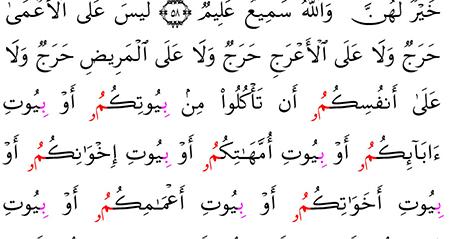 خَيْرٌ لَّهُنَّ ۗ وَاللَّهُ سَمِيعٌ عَلِيمٌ ﴿٥٨﴾ لَيْسَ عَلَى الْأَعْمَىٰ
حَرَجٌ وَلَا عَلَى الْأَعْرَجِ حَرَجٌ وَلَا عَلَى الْمَرِيضِ حَرَجٌ وَلَا
عَلَىٰ أَنفُسِكُمُۥ أَن تَأْكُلُوا۟ مِنۢ بِيُوتِكُمُۥ أَوْ بِيُوتِ
ءَابَآئِكُمُۥ أَوْ بِيُوتِ أُمَّهَـٰتِكُمُۥ أَوْ بِيُوتِ إِخْوَٰنِكُمُۥ أَوْ
بِيُوتِ أَخَوَٰتِكُمُۥ أَوْ بِيُوتِ أَعْمَـٰمِكُمُۥ أَوْ بِيُوتِ